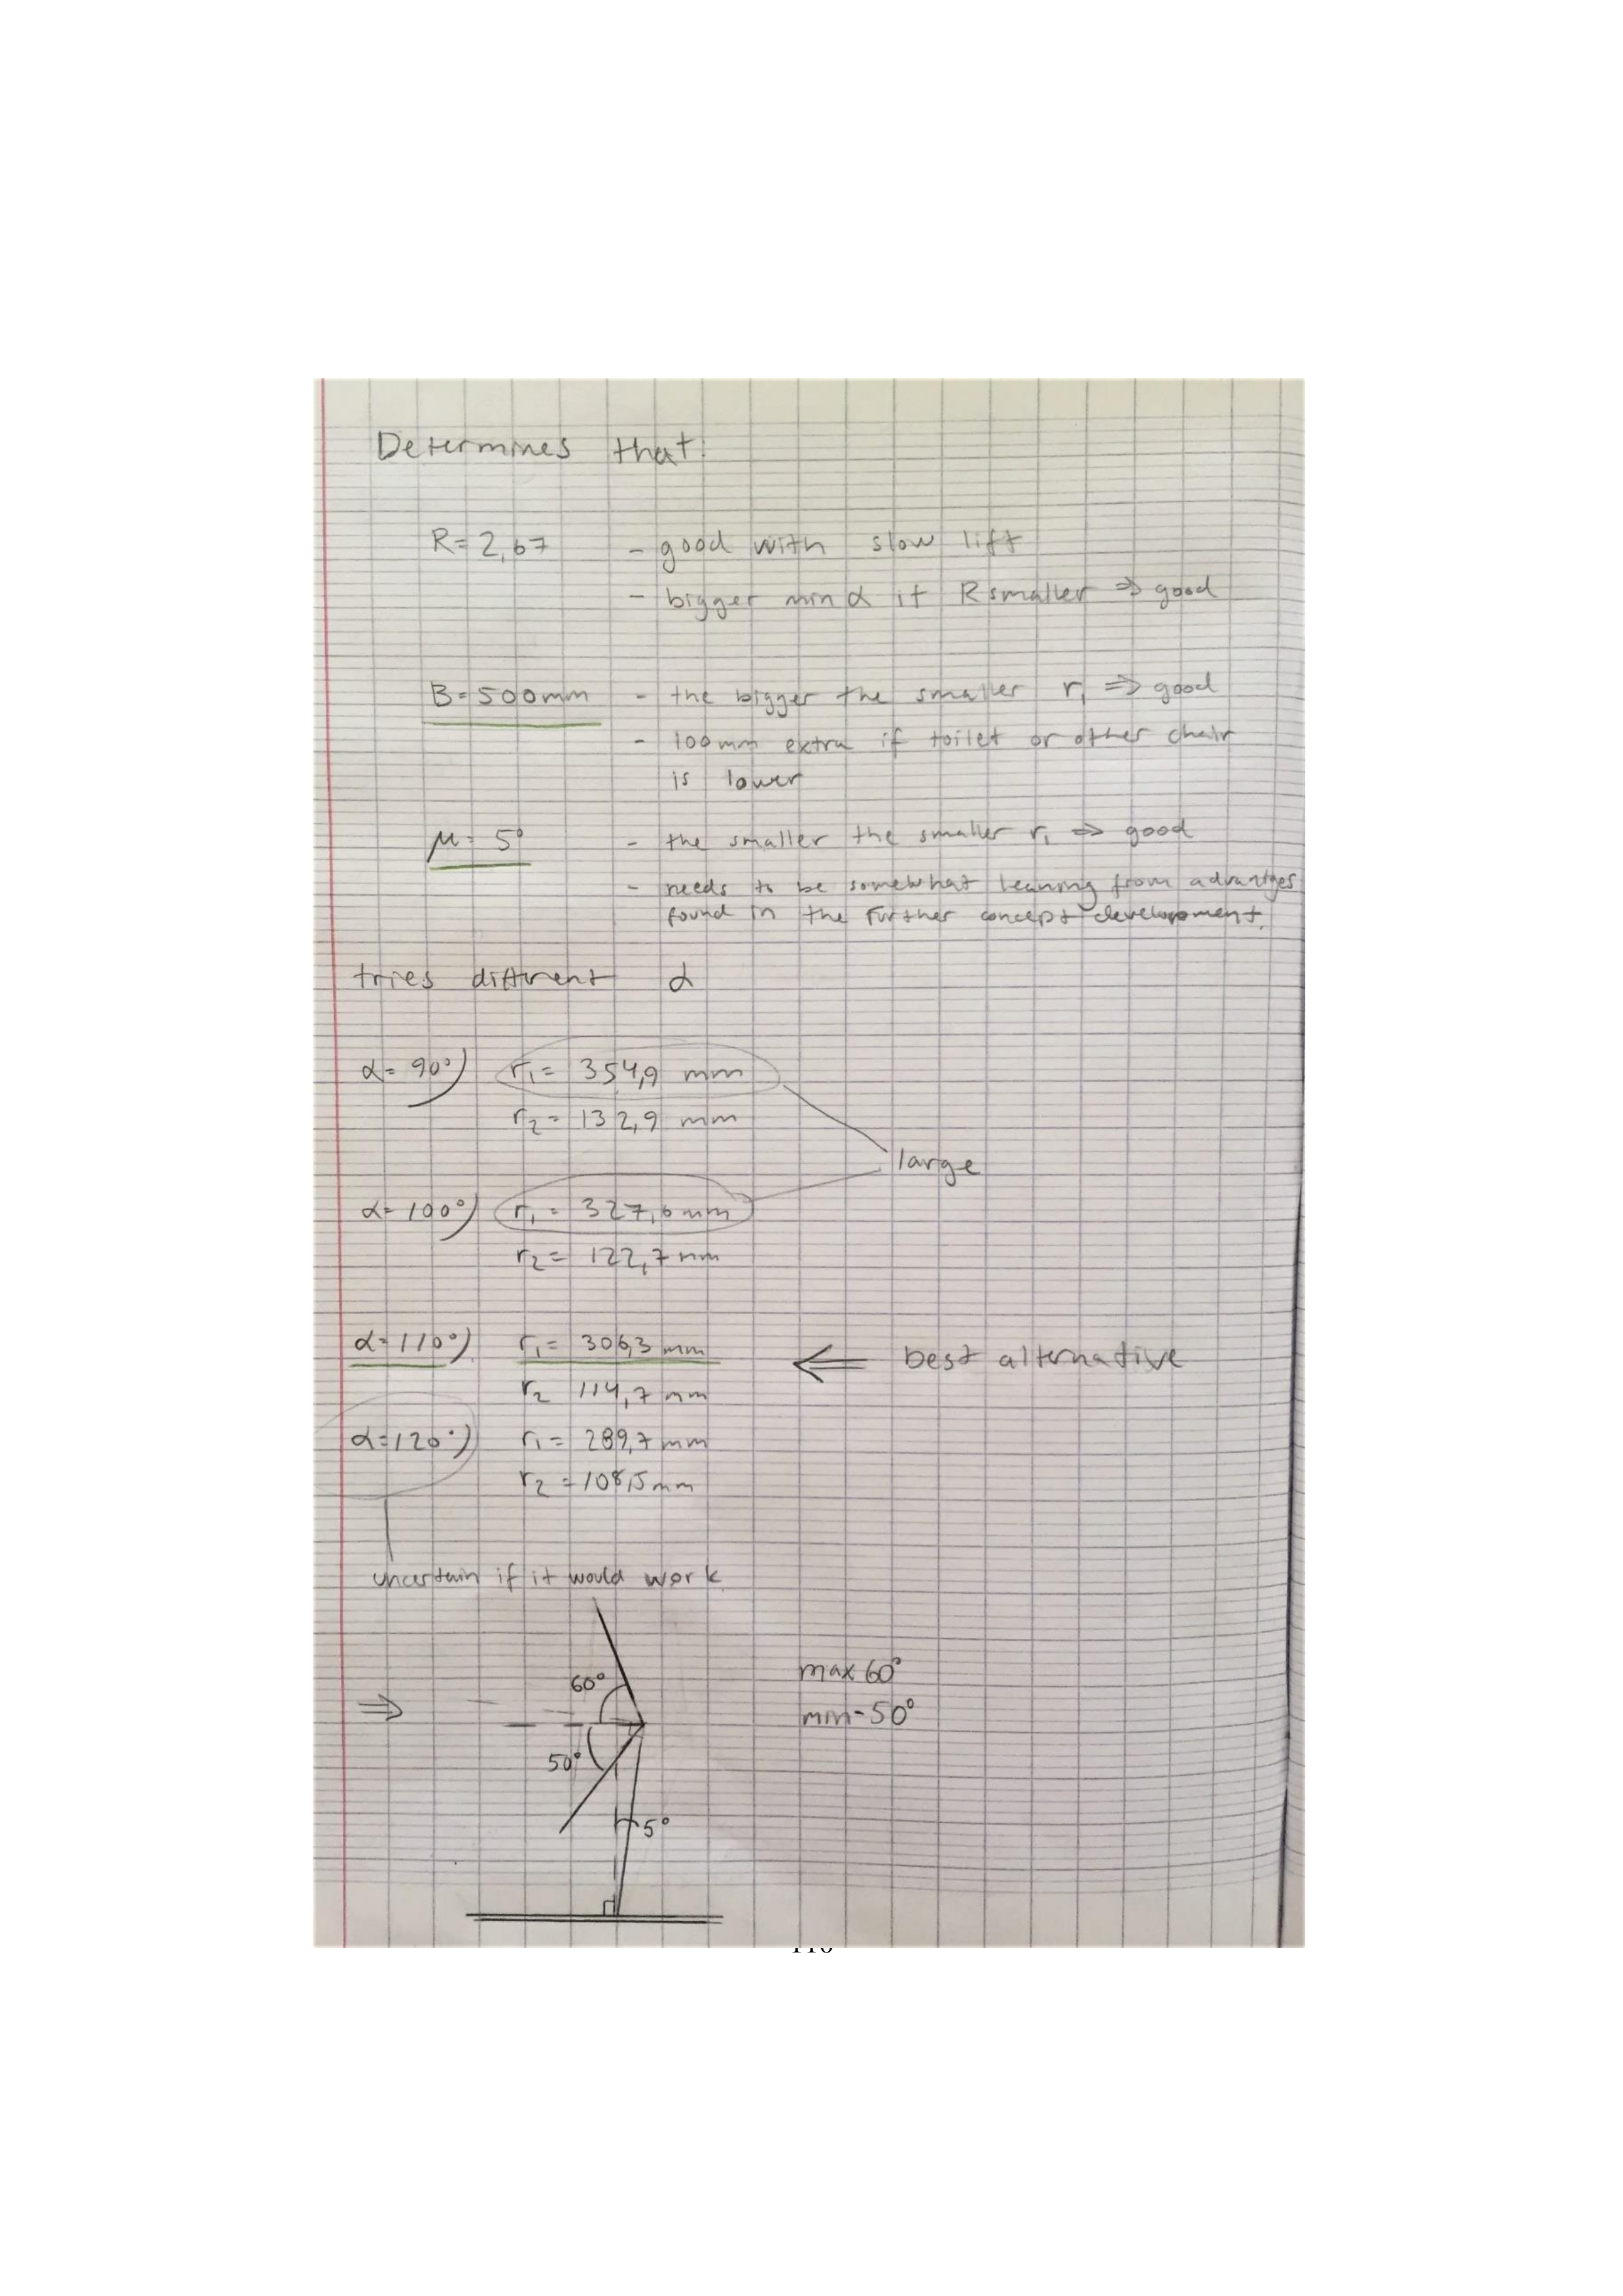 Determines that:
R= 2,67 - good with slow lift
- bigger min α if R smaller ⇒ good
B=500mm - the bigger the smaller r₁ ⇒ good
- 100mm extra if toilet or other chair
is lower
μ= 5° - the smaller the smaller r₁ ⇒ good
- needs to be somewhat leaning from advantges
found in the further concept development.
tries different α
α= 90°) r₁= 354,9 mm
r₂= 132,9 mm
large
α= 100°) r₁= 327,6 mm
r₂= 122,7 mm
α= 110°) r₁= 306,3 mm ⇐ best alternative
r₂ 114,7 mm
α=120°) r₁= 289,7 mm
r₂ =108,5 mm
uncertain if it would work
60° max 60°
⇒ min-50°
50°
5°